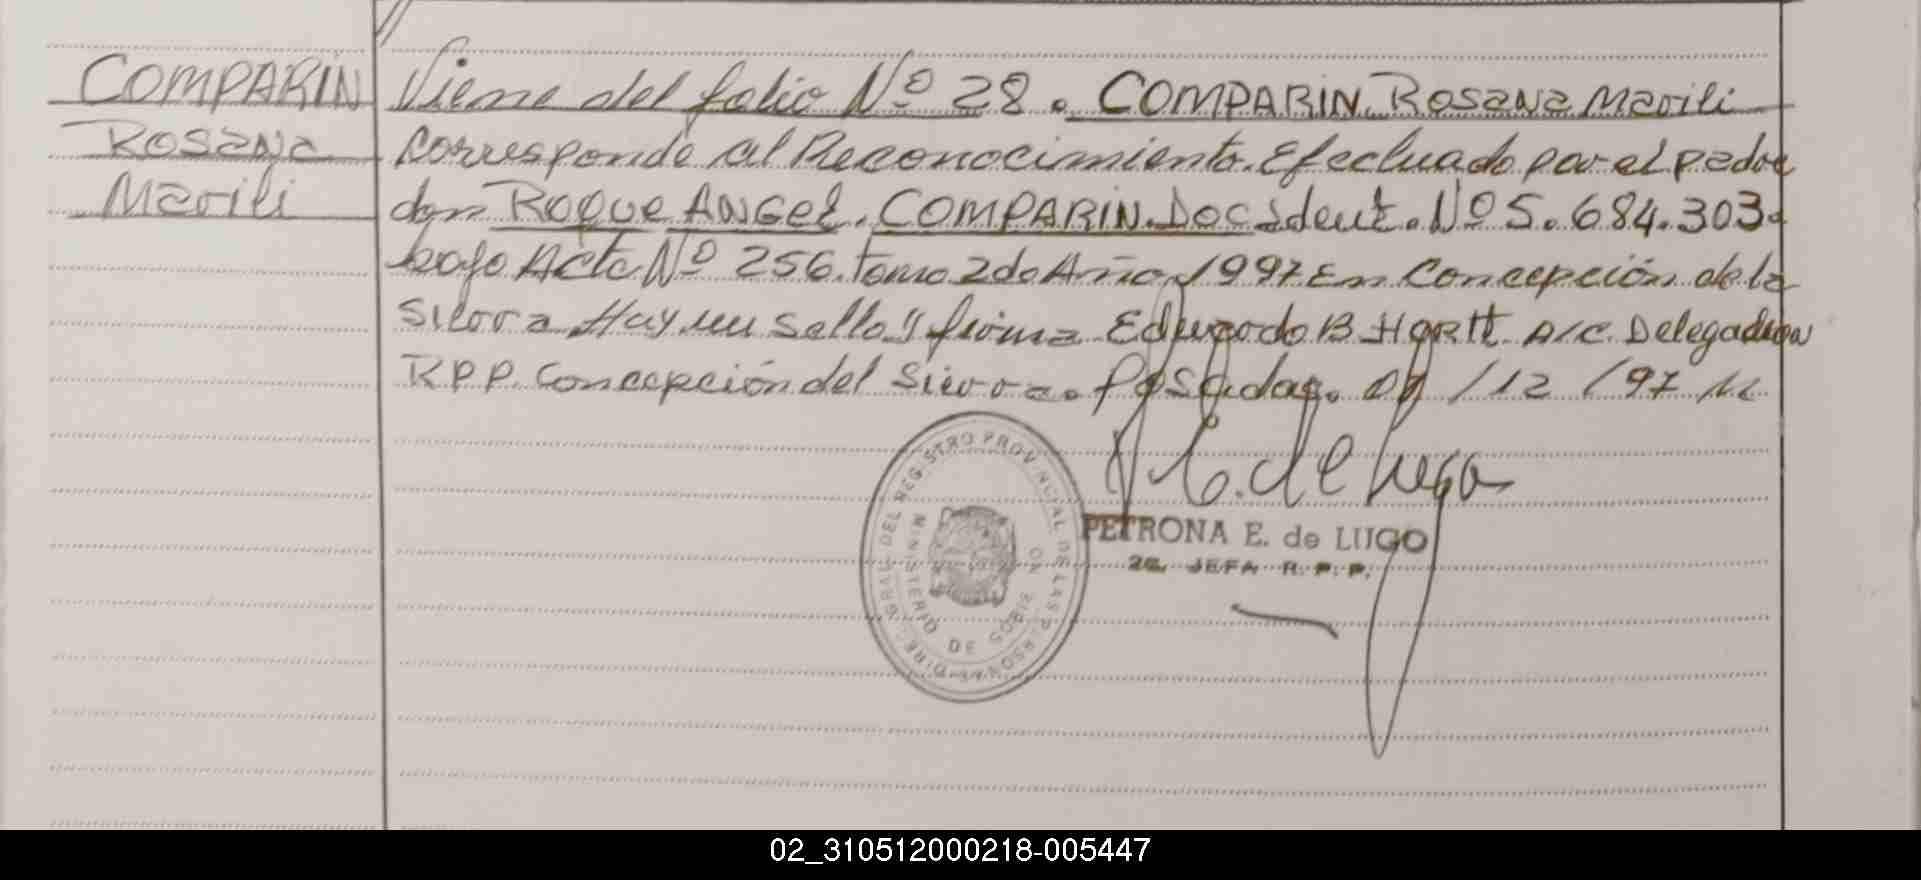 COMPARIN
Rosana
Marili
Viene del folio Nº 28. COMPARIN Rosana Marili
Corresponde al Reconocimiento. Efectuado por el padre
don ROQUE ANGEL. COMPARIN. Doc Ident. Nº 5.684.303.
bajo Acta Nº 256. Tomo 2do Año 1997 En Concepción de la
Sierra Hay un sello y firma Eduardo B. A/C. Delegación
RPP. Concepción del Sierra. Posadas. /12 /97
DIREC. GRAL. DEL REGISTRO PROVINCIAL DE LAS PERSONAS
MINISTERIO DE GOBIERNO
PETRONA E. de LUGO
2a. JEFA R. P. P.
02_310512000218-005447